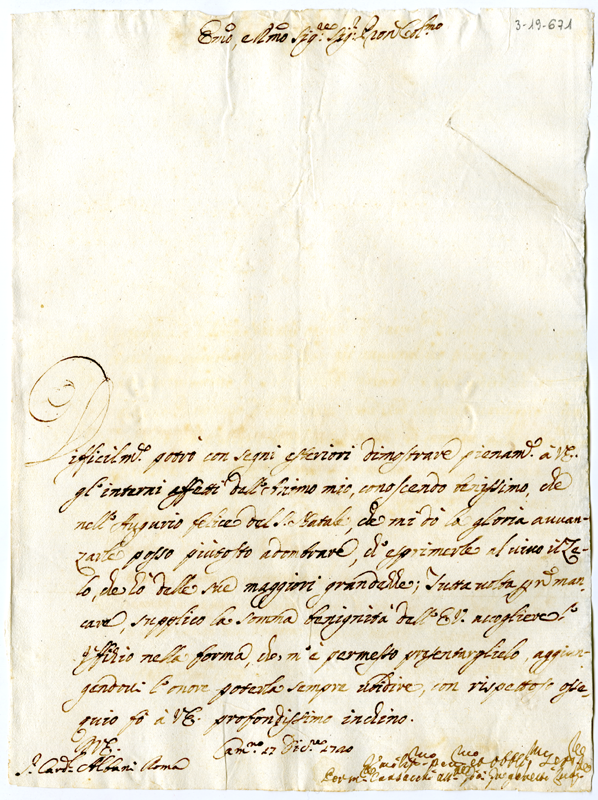 3-19-671
Emo, e Rmo Sig.re Sig.r Pron Col.mo
Difficilm.e potrò con segni esteriori dimostrare pienam.e à V.E.
gl'interni affetti dell'Animo mio, conoscendo benissimo, che
nell'Augurio felice del S. Natale, che mi dò la gloria avvan-
zarle posso piutosto adombrare, ch'esprimerle al vivo il Ze-
lo, che hò delle sue maggiori grandezze; Tutta volta p non man-
care, supplico la somma benignità dell'E.V. accogliere l'
Uffizio nella forma, che m'è permesso presentarglielo, aggiun-
gendovi l'onore poterla sempre ubidire, con rispettoso osse-
quio fò à V.E. profondissimo inchino.
Di V.E. Cam.no 27 Dic.re 1720
S.r Card.l Albani Roma